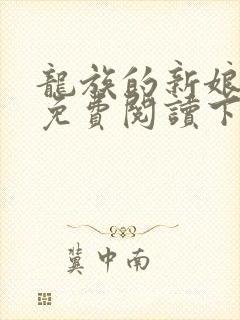 龍族的新娘
免費閱讀下
冀中南